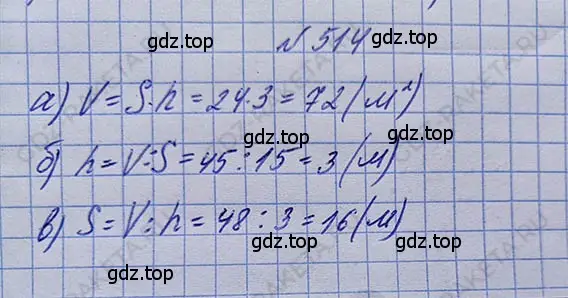 gdz.top
№ 514
gdz.top
а) V = S · h = 24 · 3 = 72 (м²)
gdz.top gdz.top
б) h = V : S = 45 : 15 = 3 (м)
gdz.top
в) S = V : h = 48 : 3 = 16 (м)
gdz.top gdz.top
gdz.top